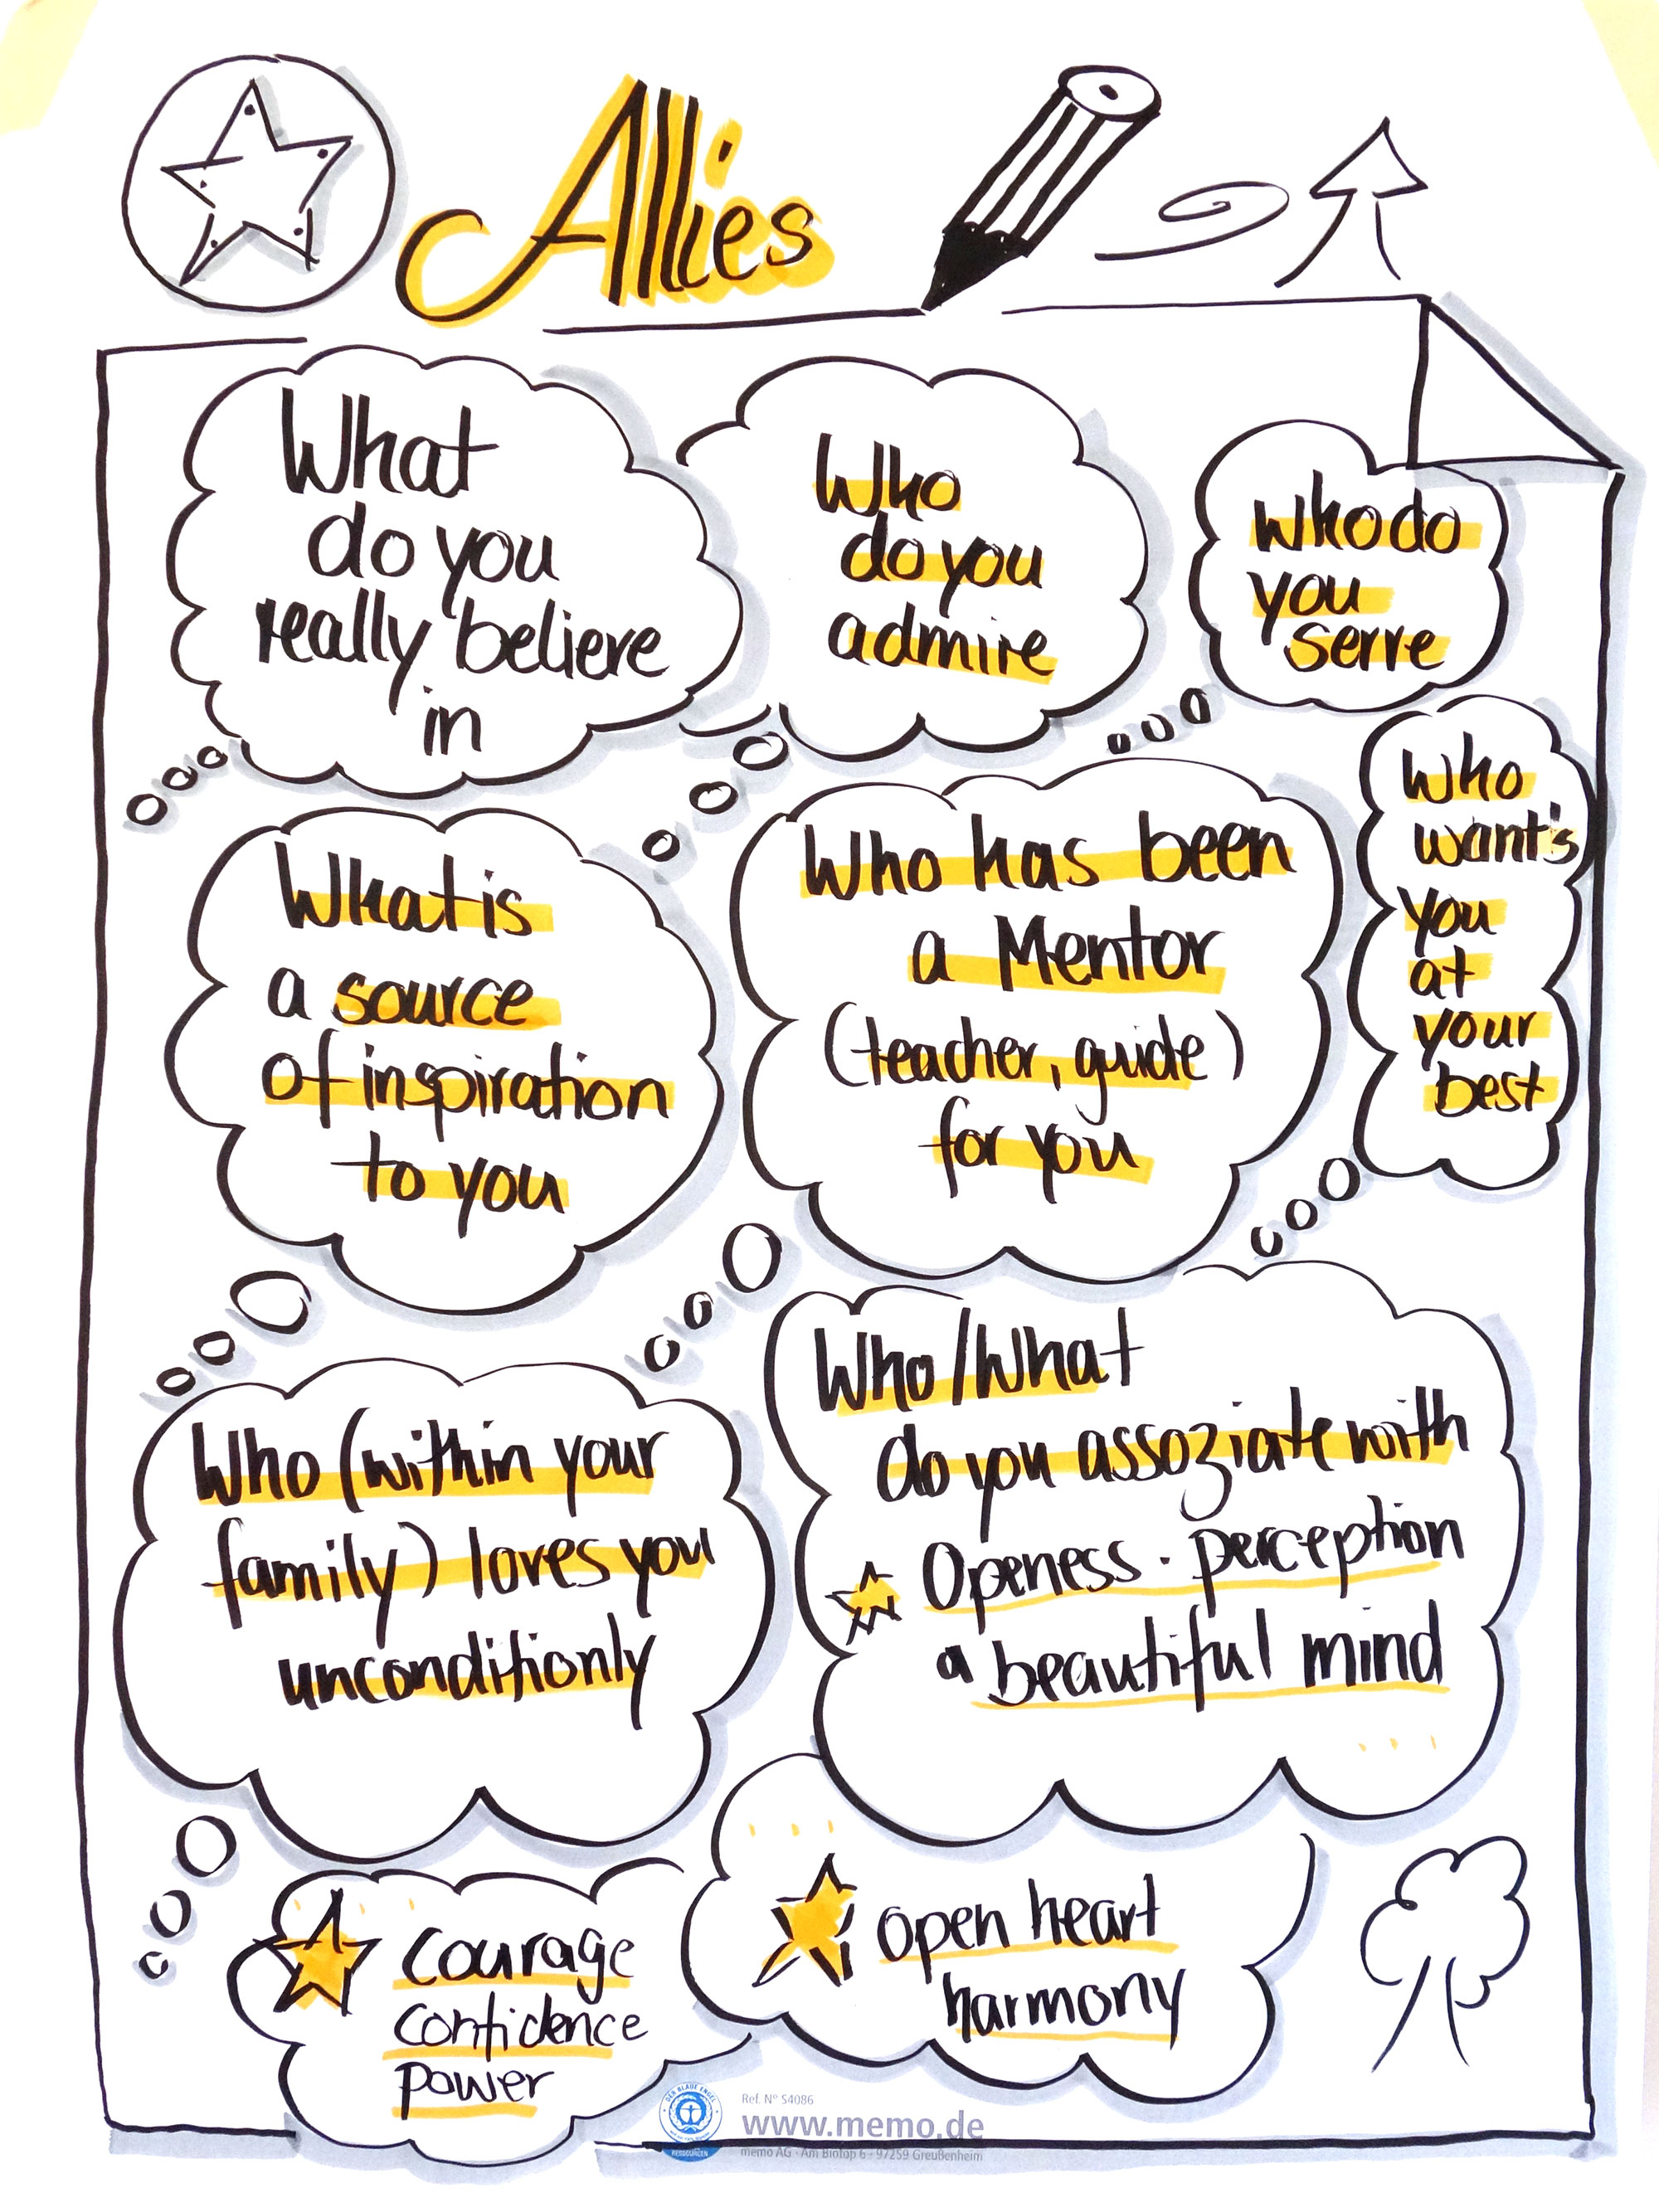 Allies
What
do you
really believe
in
Who
do you
admire
Who do
you
serve
What is
a source
of inspiration
to you
Who has been
a Mentor
(teacher, guide)
for you
Who
want's
you
at
your
best
Who (within your
family) loves you
unconditionly
Who/What
do you assoziate with
Openess · perception
a beautiful mind
Courage
confidence
power
open heart
harmony
DER BLAUE ENGEL
Ref. N° 54086
www.memo.de
memo AG · Am Biotop 6 · 97259 Greußenheim